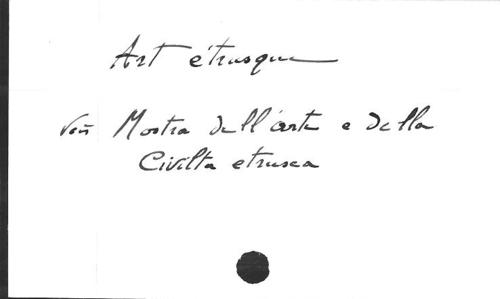 Art étrusque
voir Mostra dell'arte e della
Civilta etrusca